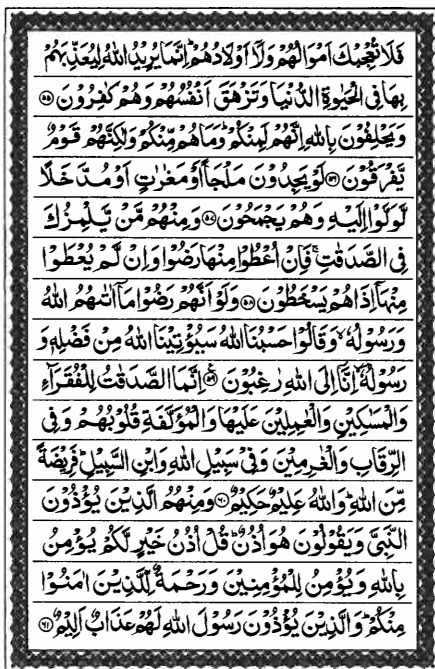 فَلَا تُعۡجِبۡكَ اَمۡوَالُهُمۡ وَلَاۤ اَوۡلَادُهُمۡ ؕ اِنَّمَا يُرِيۡدُ اللّٰهُ لِيُعَذِّبَهُمۡ
بِهَا فِى الۡحَيٰوةِ الدُّنۡيَا وَتَزۡهَقَ اَنۡفُسُهُمۡ وَهُمۡ كٰفِرُوۡنَ ۝۵۵
وَيَحۡلِفُوۡنَ بِاللّٰهِ اِنَّهُمۡ لَمِنۡكُمۡ ؕ وَمَا هُمۡ مِّنۡكُمۡ وَلٰكِنَّهُمۡ قَوۡمٌ
يَّفۡرَقُوۡنَ ۝۵۶ لَوۡ يَجِدُوۡنَ مَلۡجَاً اَوۡ مَغٰرٰتٍ اَوۡ مُدَّخَلًا
لَّوَلَّوۡا اِلَيۡهِ وَهُمۡ يَجۡمَحُوۡنَ ۝۵۷ وَمِنۡهُمۡ مَّنۡ يَّلۡمِزُكَ
فِى الصَّدَقٰتِ ۚ فَاِنۡ اُعۡطُوۡا مِنۡهَا رَضُوۡا وَاِنۡ لَّمۡ يُعۡطَوۡا
مِنۡهَاۤ اِذَا هُمۡ يَسۡخَطُوۡنَ ۝۵۸ وَلَوۡ اَنَّهُمۡ رَضُوۡا مَاۤ اٰتٰٮهُمُ اللّٰهُ
وَرَسُوۡلُهٗ ۙ وَقَالُوۡا حَسۡبُنَا اللّٰهُ سَيُؤۡتِيۡنَا اللّٰهُ مِنۡ فَضۡلِهٖ وَ
رَسُوۡلُهٗۤ ۙ اِنَّاۤ اِلَى اللّٰهِ رٰغِبُوۡنَ ۝۵۹ اِنَّمَا الصَّدَقٰتُ لِلۡفُقَرَآءِ
وَالۡمَسٰكِيۡنِ وَالۡعٰمِلِيۡنَ عَلَيۡهَا وَالۡمُؤَلَّفَةِ قُلُوۡبُهُمۡ وَفِى
الرِّقَابِ وَالۡغٰرِمِيۡنَ وَفِىۡ سَبِيۡلِ اللّٰهِ وَابۡنِ السَّبِيۡلِ ؕ فَرِيۡضَةً
مِّنَ اللّٰهِ ؕ وَاللّٰهُ عَلِيۡمٌ حَكِيۡمٌ ۝۶۰ وَمِنۡهُمُ الَّذِيۡنَ يُؤۡذُوۡنَ
النَّبِىَّ وَيَقُوۡلُوۡنَ هُوَ اُذُنٌ ؕ قُلۡ اُذُنُ خَيۡرٍ لَّكُمۡ يُؤۡمِنُ
بِاللّٰهِ وَيُؤۡمِنُ لِلۡمُؤۡمِنِيۡنَ وَرَحۡمَةٌ لِّلَّذِيۡنَ اٰمَنُوۡا
مِنۡكُمۡ ؕ وَالَّذِيۡنَ يُؤۡذُوۡنَ رَسُوۡلَ اللّٰهِ لَهُمۡ عَذَابٌ اَلِيۡمٌ ۝۶۱